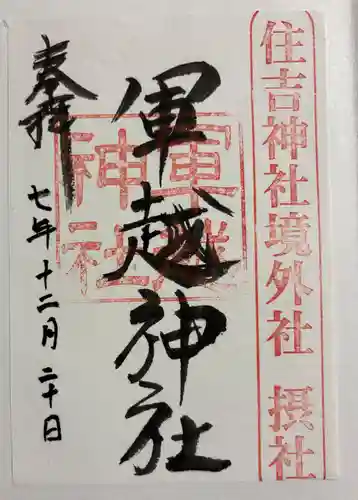 住吉神社境外社 摂社
軍越神社
軍越神社
奉拝
七年十二月二十日